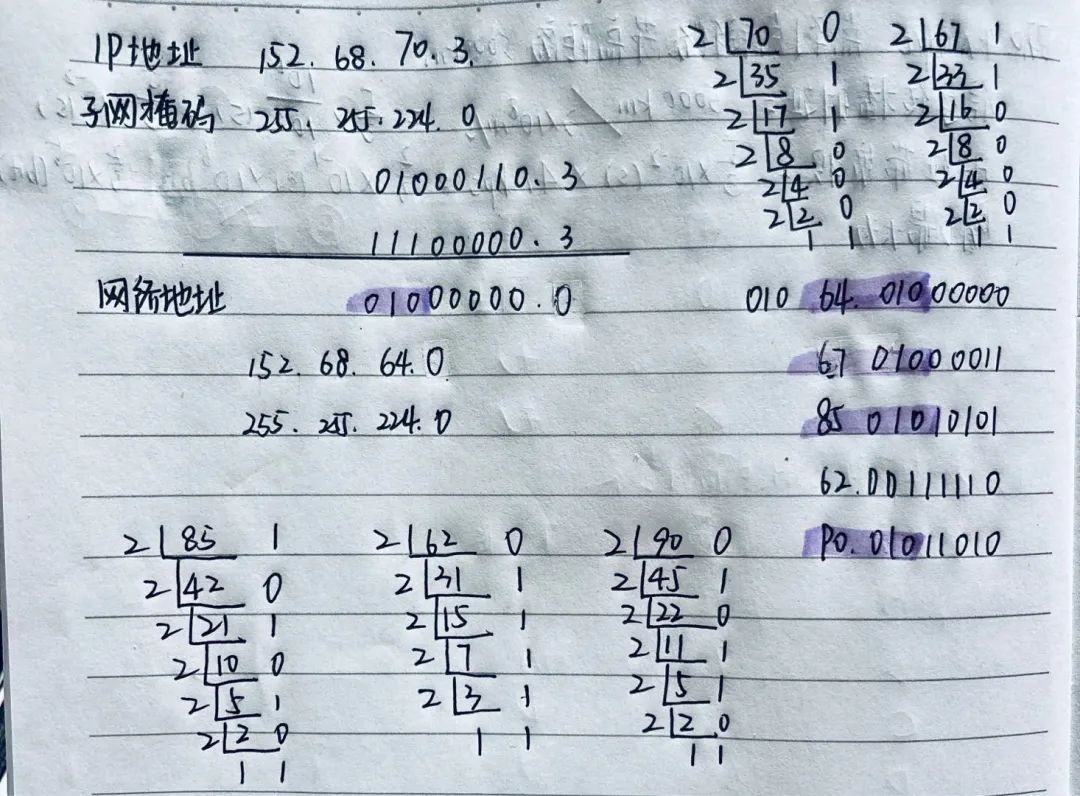 IP地址 152.68.70.3
子网掩码 255.255.224.0
01000110.3
11100000.3
网络地址 01000000.0
152.68.64.0
255.255.224.0
2 70 0
2 35 1
2 17 1
2 8 0
2 4 0
2 2 0
1 1
2 67 1
2 33 1
2 16 0
2 8 0
2 4 0
2 2 0
1 1
010 64. 01000000
67 01000011
85 01010101
62.00111110
90. 01011010
2 85 1
2 42 0
2 21 1
2 10 0
2 5 1
2 2 0
1 1
2 62 0
2 31 1
2 15 1
2 7 1
2 3 1
1 1
2 90 0
2 45 1
2 22 0
2 11 1
2 5 1
2 2 0
1 1